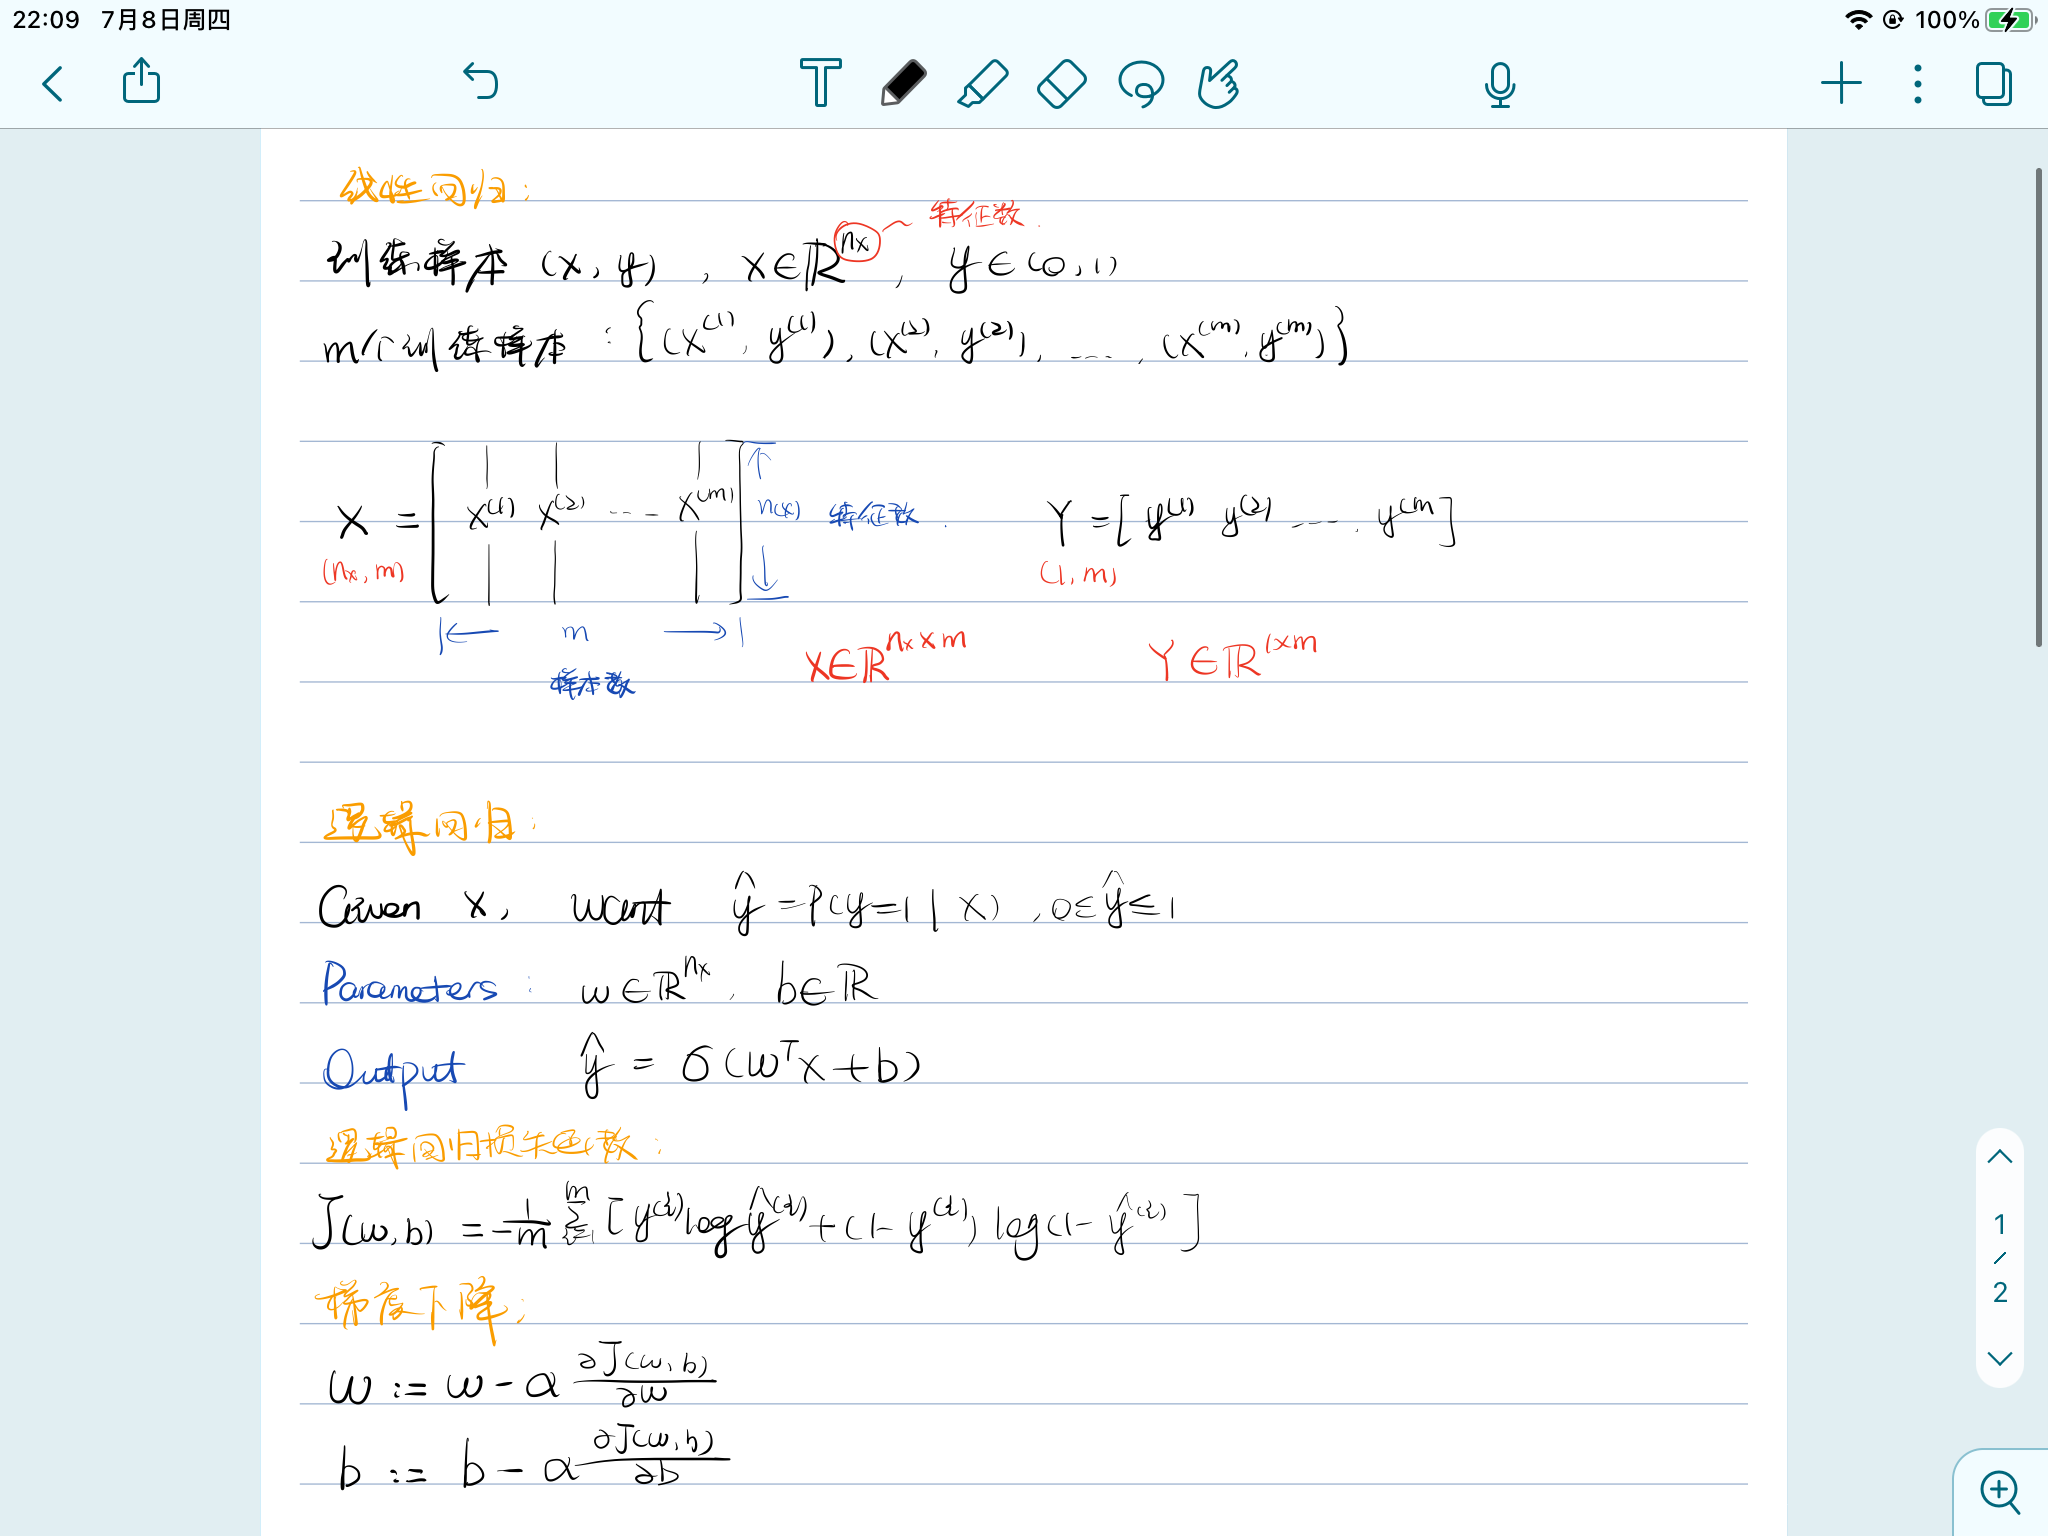 22:09 7月8日周四 100%
线性回归:
特征数.
训练样本 (x, y), x∈ℝ^nx, y∈(0,1)
m个训练样本: {(x^(1), y^(1)), (x^(2), y^(2)), ...., (x^(m), y^(m))}
X = [x^(1) x^(2) ... x^(m)] n(x) 特征数. Y = [y^(1) y^(2) .... y^(m]
(nx, m) (1, m)
m
样本数 X∈ℝ^nx×m Y∈ℝ^1×m
逻辑回归:
Given x, want ŷ = P(y=1 | x), 0≤ŷ≤1
Parameters: w∈ℝ^nx, b∈ℝ
Output ŷ = σ(w^T x + b)
逻辑回归损失函数:
J(w,b) = -1/m Σ_{i=1}^m [y^(i) log ŷ^(i) + (1-y^(i)) log(1-ŷ^(i)]
梯度下降:
w := w - α ∂J(w,b)/∂w
b := b - α ∂J(w,b)/∂b
1
/
2